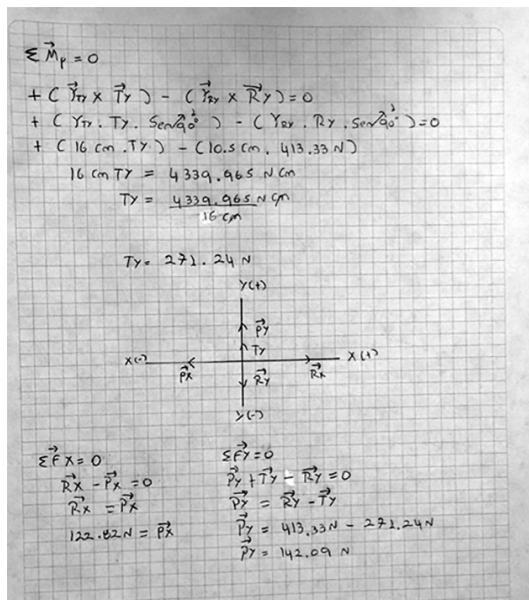 Σ M⃗p = 0
+ ( r⃗Ty x T⃗y ) - ( r⃗Ry x R⃗y ) = 0
+ ( rTy . Ty . Sen 90° ) - ( rRy . Ry . Sen 90° ) = 0
+ ( 16 cm . Ty ) - ( 10.5 cm . 413.33 N )
16 cm Ty = 4339.965 N cm
Ty = 4339.965 N cm
16 cm
Ty = 271.24 N
Y(+)
P⃗y
Ty
X(-) X(+)
P⃗x R⃗y R⃗x
Y(-)
ΣF⃗x = 0
R⃗x - P⃗x = 0
R⃗x = P⃗x
122.82 N = P⃗x
ΣF⃗y = 0
P⃗y + T⃗y - R⃗y = 0
P⃗y = R⃗y - T⃗y
P⃗y = 413.33N - 271.24N
P⃗y = 142.09 N